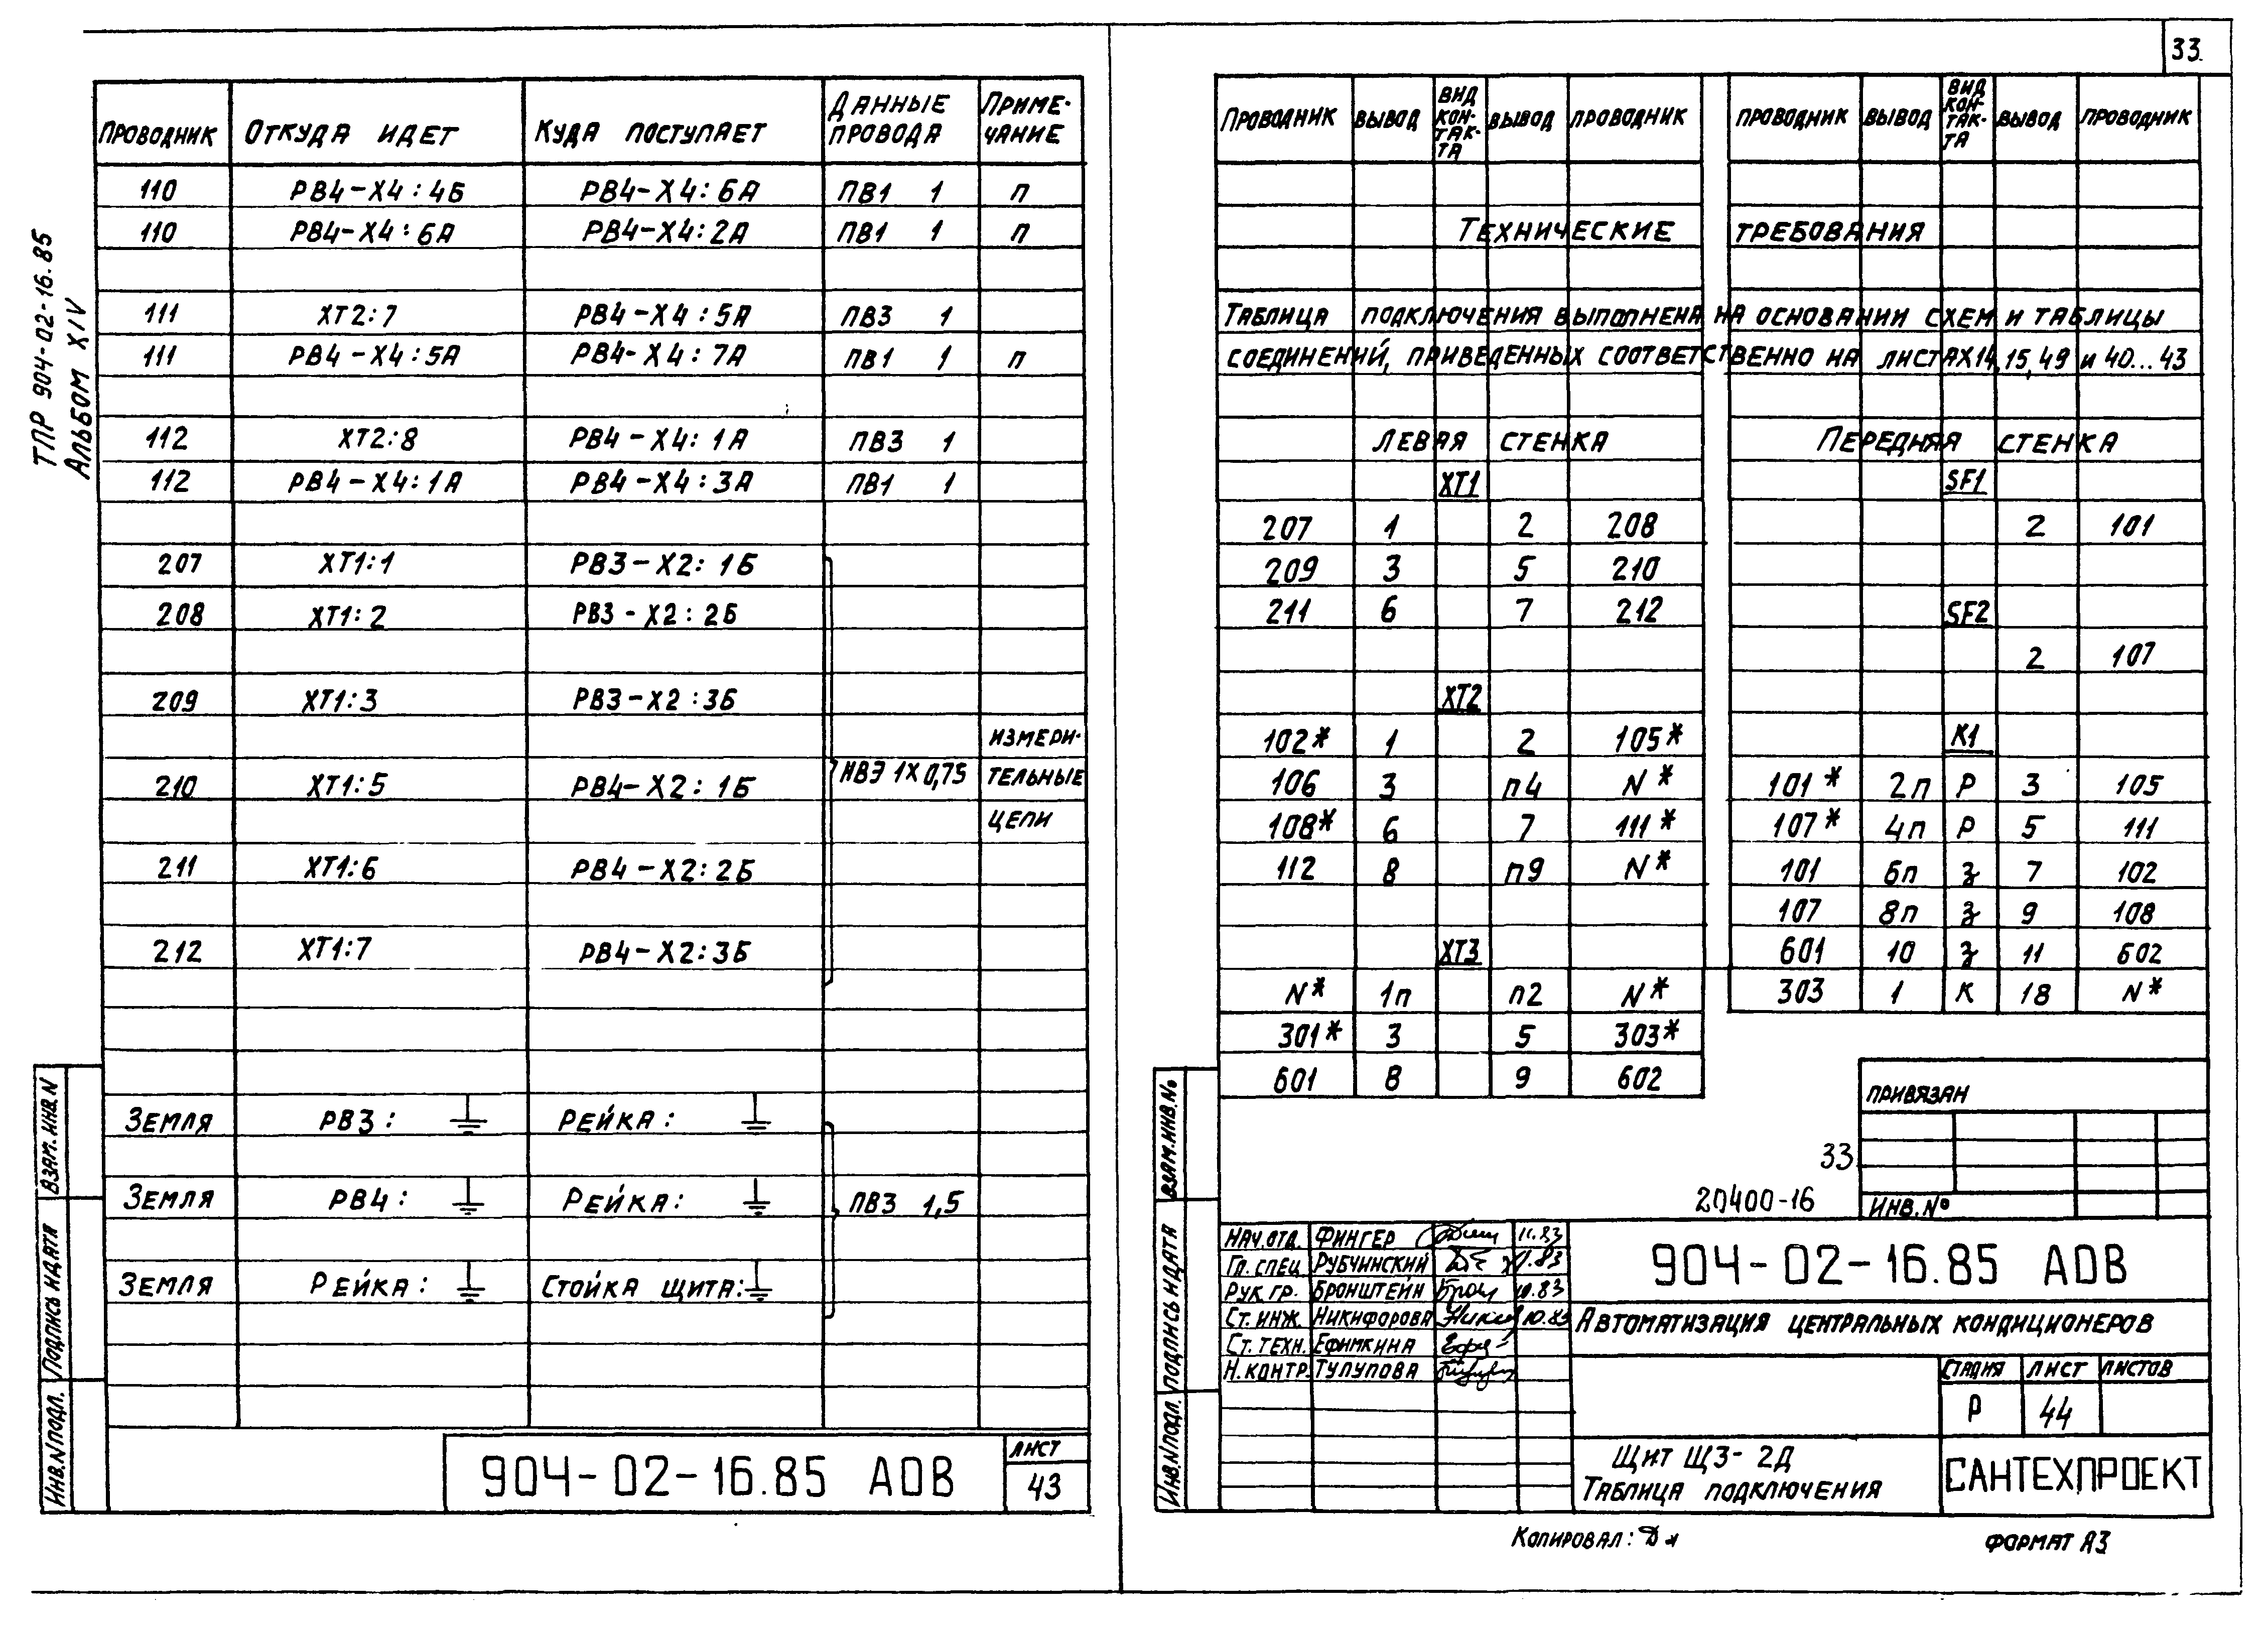 33
ТПР 904-02-16.85
Альбом XIV
Проводник Откуда идет Куда поступает Данные провода Приме-чание
110 РВ4-Х4:4Б РВ4-Х4:6А ПВ1 1 п
110 РВ4-Х4:6А РВ4-Х4:2А ПВ1 1 п
111 ХТ2:7 РВ4-Х4:5А ПВ3 1
111 РВ4-Х4:5А РВ4-Х4:7А ПВ1 1 п
112 ХТ2:8 РВ4-Х4:1А ПВ3 1
112 РВ4-Х4:1А РВ4-Х4:3А ПВ1 1
207 ХТ1:1 РВ3-Х2:1Б
208 ХТ1:2 РВ3-Х2:2Б
209 ХТ1:3 РВ3-Х2:3Б
измери-
210 ХТ1:5 РВ4-Х2:1Б НВЭ 1х0,75 тельные
цепи
211 ХТ1:6 РВ4-Х2:2Б
212 ХТ1:7 РВ4-Х2:3Б
Земля РВ3: Рейка:
Земля РВ4: Рейка: ПВ3 1,5
Земля Рейка: Стойка щита:
Взам. инв. N
Подпись и дата
Инв. N подл.
904-02-16.85 АОВ
Лист
43
Проводник Вывод Вид кон-так-та Вывод Проводник Проводник Вывод Вид кон-так-та Вывод Проводник
Технические требования
Таблица подключения выполнена на основании схем и таблицы
соединений, приведенных соответственно на листах 14,15,49 и 40...43
Левая стенка Передняя стенка
ХТ1 SF1
207 1 2 208 2 101
209 3 5 210
211 6 7 212 SF2
2 107
ХТ2
102* 1 2 105* К1
106 3 п4 N* 101* 2п Р 3 105
108* 6 7 111* 107* 4п Р 5 111
112 8 п9 N* 101 6п з 7 102
107 8п з 9 108
ХТ3 601 10 з 11 602
N* 1п п2 N* 303 1 К 18 N*
301* 3 5 303*
601 8 9 602
Привязан
33
20400-16
Инв. №
Взам. инв. №
Подпись и дата
Инв. N подл.
Нач. отд. Фингер 11.83
Гл. спец Рубчинский 11.83
Рук. гр. Бронштейн 10.83
Ст. инж. Никифорова 10.83
Ст. техн. Ефимкина
Н. контр. Тулупова
904-02-16.85 АОВ
Автоматизация центральных кондиционеров
Стадия Лист Листов
Р 44
Щит ЩЗ-2Д
Таблица подключения
САНТЕХПРОЕКТ
Копировал:
Формат А3